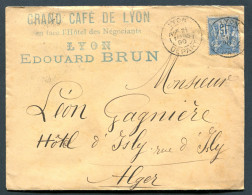 GRAND CAFE DE LYON
en face l'Hôtel des Négociants
LYON
EDOUARD BRUN
LYON
Monsieur
Léon Gagnière
Hôtel d'Isly rue d'Isly
Alger